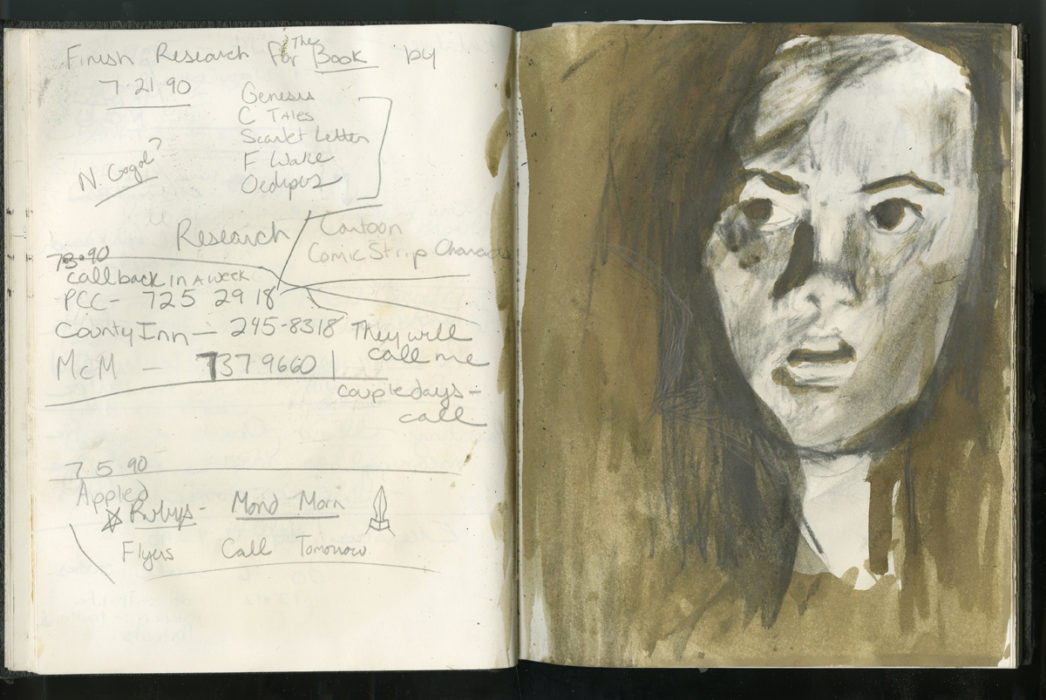 Finish Research for The Book by
7·21·90
Genesis
C TAles
Scarlet Letter
F Wake
Oedipus
N. Gogol?
Research
Cartoon
Comic Strip Characters
7·3·90
call back IN A WEEK
PCC- 725 2918
County Inn — 245-8318 They will
call me
McM — 737 9660
couple days -
call
7 5 90
Applied
Rubys - Mond Morn
Flyers Call Tomorrow